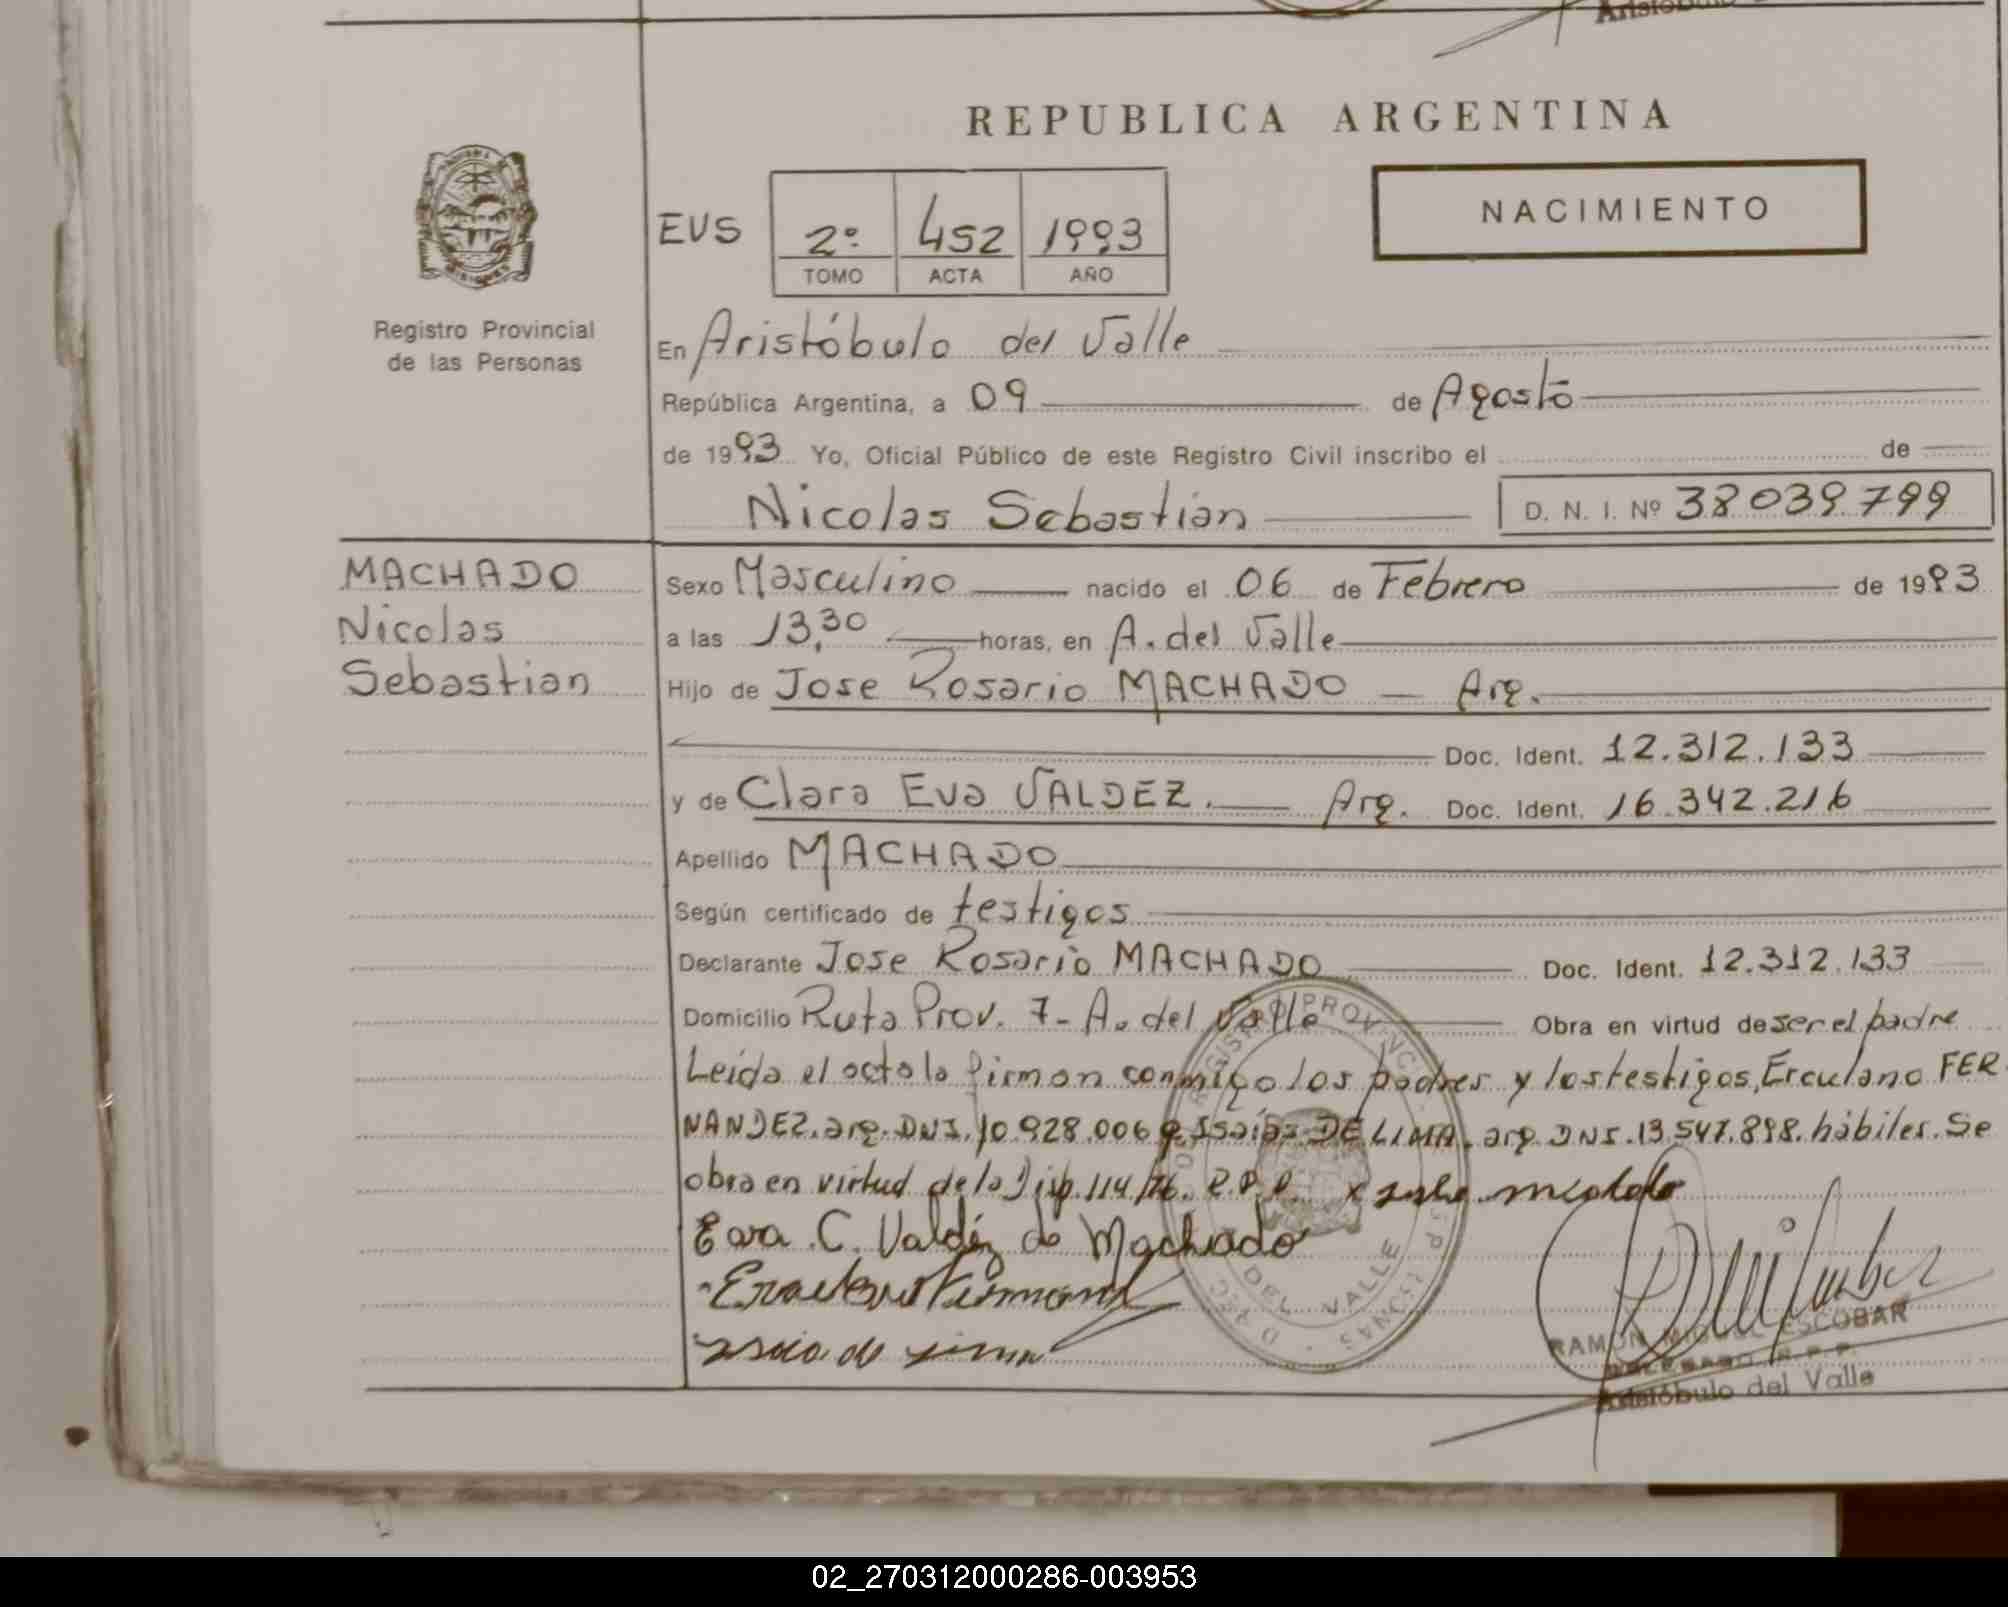 REPUBLICA ARGENTINA
NACIMIENTO
EVS 2º 452 1993
TOMO ACTA AÑO
Registro Provincial
de las Personas
En Aristóbulo del Valle
República Argentina, a 09 de Agosto
de 1993 Yo, Oficial Público de este Registro Civil inscribo el de
Nicolas Sebastian D. N. I. Nº 38039799
MACHADO
Nicolas
Sebastian
Sexo Masculino nacido el 06 de Febrero de 1993
a las 13,30 horas, en A. del Valle
Hijo de Jose Rosario MACHADO — Arg.
Doc. Ident. 12.312.133
y de Clara Eva VALDEZ. Arg. Doc. Ident. 16.342.216
Apellido MACHADO
Según certificado de testigos
Declarante Jose Rosario MACHADO Doc. Ident. 12.312.133
Domicilio Ruta Prov. 7- A. del Valle Obra en virtud de ser el padre
Leída el acta la firman conmigo los padres y los testigos, Erculano FER
NANDEZ. arg. DNI. 10.928.006 e Isaías DE LIMA. arg. DNI. 13.547.898. hábiles. Se
obra en virtud de la Disp. 114/76. R.P.P.
Eva C. Valdéz de Machado
RAMON MIGUEL ESCOBAR
DELEGADO R.P.P.
Aristóbulo del Valle
DEL VALLE
02_270312000286-003953